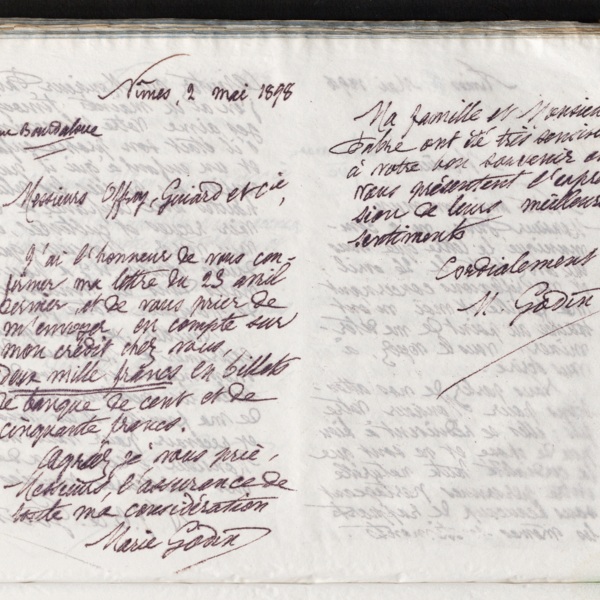 Nîmes, 2 mai 1898
rue Bourdaloue
Messieurs Offroy, Guiard et Cie,
J'ai l'honneur de vous con-
firmer ma lettre du 23 avril
dernier, et de vous prier de
m'envoyer, en compte sur
mon crédit chez vous,
deux mille francs en billets
de banque de cent et de
cinquante francs.
Agréez je vous prie,
Messieurs, l'assurance de
toute ma considération
Marie Godin
Ma famille et Monsieur
Fabre ont été très sensibles
à votre bon souvenir et
vous présentent l'expres
sion de leurs meilleurs
sentiments
Cordialement
M Godin